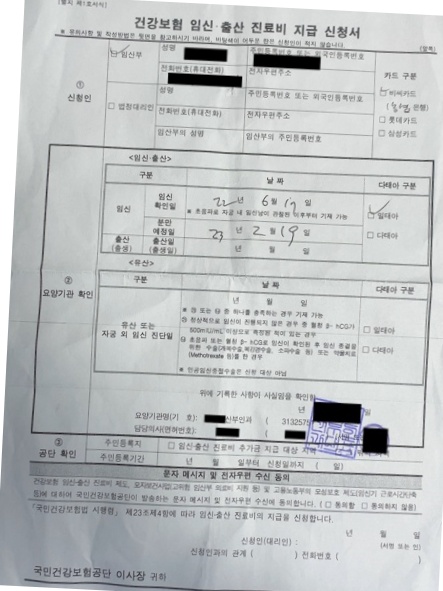 [별지 제1호서식]
건강보험 임신·출산 진료비 지급 신청서
※ 유의사항 및 작성방법은 뒷면을 참고하시기 바라며, 바탕색이 어두운 란은 신청인이 적지 않습니다.
(앞쪽)
① 신청인
임산부
성명
주민등록번호 또는 외국인등록번호
전화번호(휴대전화)
전자우편주소
법정대리인
성명
주민등록번호 또는 외국인등록번호
전화번호(휴대전화)
전자우편주소
임산부의 성명
임산부의 주민등록번호
카드 구분
비씨카드
은행)
롯데카드
삼성카드
② 요양기관 확인
<임신·출산>
구분
날 짜
다태아 구분
임신
임신 확인일
22 년 6 월 17 일
※ 초음파로 자궁 내 임신낭이 관찰된 이후부터 기재 가능
분만 예정일
23 년 2 월 19 일
출산 (출생)
출산일 (출생일)
년 월 일
일태아
다태아
<유산>
구분
날 짜
다태아 구분
유산 또는 자궁 외 임신 진단일
년 월 일
※ ㉮ 또는 ㉯ 중 하나를 충족하는 경우 기재 가능
㉮ 정상적으로 임신이 진행되지 않은 경우 중 혈청 β- hCG가
500mIU/mL 이상으로 측정된 적이 있는 경우
㉯ 초음파 또는 혈청 β- hCG로 임신이 확인된 후 임신 종결을
위한 수술(자궁수술, 복강경수술, 소파수술 등) 또는 약물치료
(Methotrexate 등)를 한 경우
※ 인공임신중절수술은 신청 대상 아님
일태아
다태아
위에 기록한 사항이 사실임을 확인함
일
요양기관명(기 호):
산부인과 ( 3132575
담당의사(면허번호):
③ 공단 확인
주민등록지
임신·출산 진료비 추가금 지급 대상 지역
주민등록기간
년 월 일부터 신청일까지 ( 일)
문자 메시지 및 전자우편 수신 동의
건강보험 임신·출산 진료비 제도, 모자보건사업(고위험 임산부 의료비 지원 등) 및 고용노동부의 모성보호 제도(임신기 근로시간단축
등)에 대하여 국민건강보험공단이 발송하는 문자 메시지 및 전자우편 수신에 동의합니다. ( 동의함 동의하지 않음)
「국민건강보험법 시행령」 제23조제4항에 따라 임신·출산 진료비의 지급을 신청합니다.
년 월 일
신청인(대리인) :
(서명 또는 인)
신청인과의 관계 ( ) 전화번호 ( )
국민건강보험공단 이사장 귀하